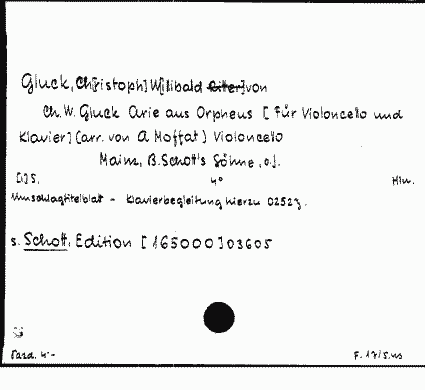 Gluck, Ch[ristoph] W[illibald Ritter] von
Ch. W. Gluck Arie aus Orpheus [Für Violoncello und
Klavier] (arr. von A Moffat) Violoncello
Mainz, B. Schott's Söhne, o.J.
[1] S. 4° Hlw.
Umschlagtitelblat - Klavierbegleitung hierzu 02523.
s. Schott, Edition [165000] 03605
F. 17/5.